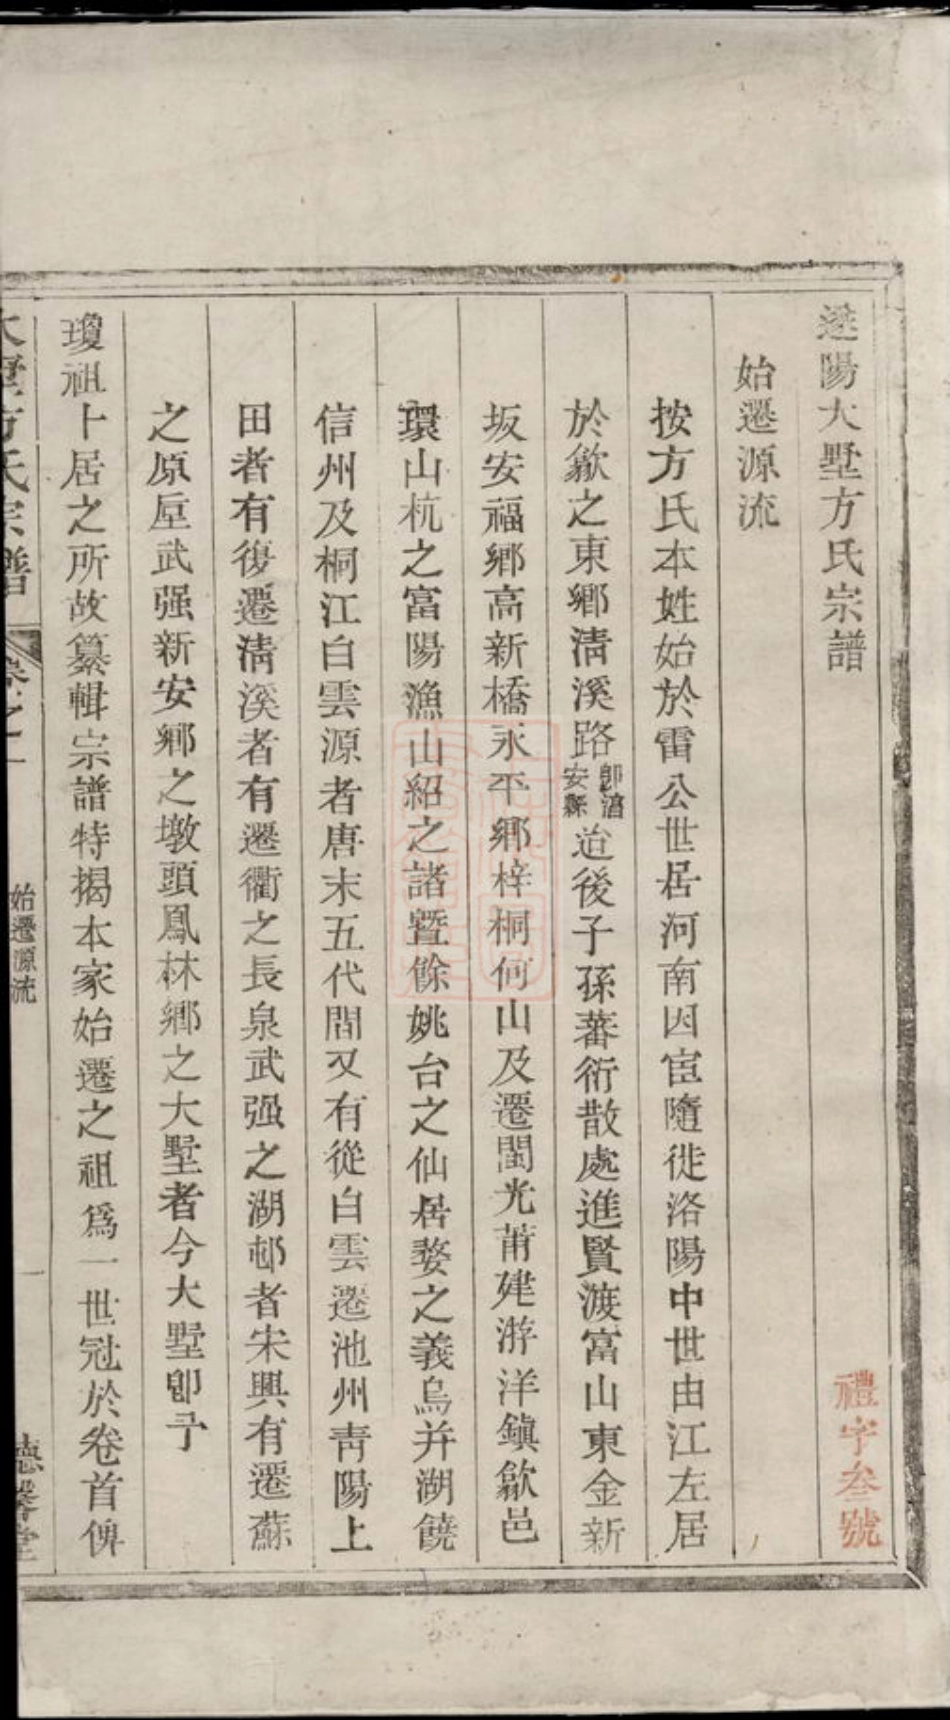 遂陽大墅方氏宗譜
禮字叁號
始遷源流
按方氏本姓始於雷公世居河南因宦隨徙洛陽中世由江左居
於歙之東鄉淸溪路卽湻安縣迨後子孫蕃衍散處進賢渡富山東金新
坂安福鄉高新橋永平鄉梓桐何山及遷閩光莆建游洋鎭歙邑
環山杭之富陽漁山紹之諸曁餘姚台之仙居婺之義烏并湖饒
信州及桐江白雲源者唐末五代間又有從白雲遷池州靑陽上
田者有復遷淸溪者有遷衢之長泉武强之湖邨者宋興有遷蘇
之原㕓武强新安鄉之墩頭鳳林鄉之大墅者今大墅卽予
瓊祖卜居之所故纂輯宗譜特揭本家始遷之祖爲一世冠於卷首俾
大墅方氏宗譜
卷之一
始遷源流
一
德馨堂